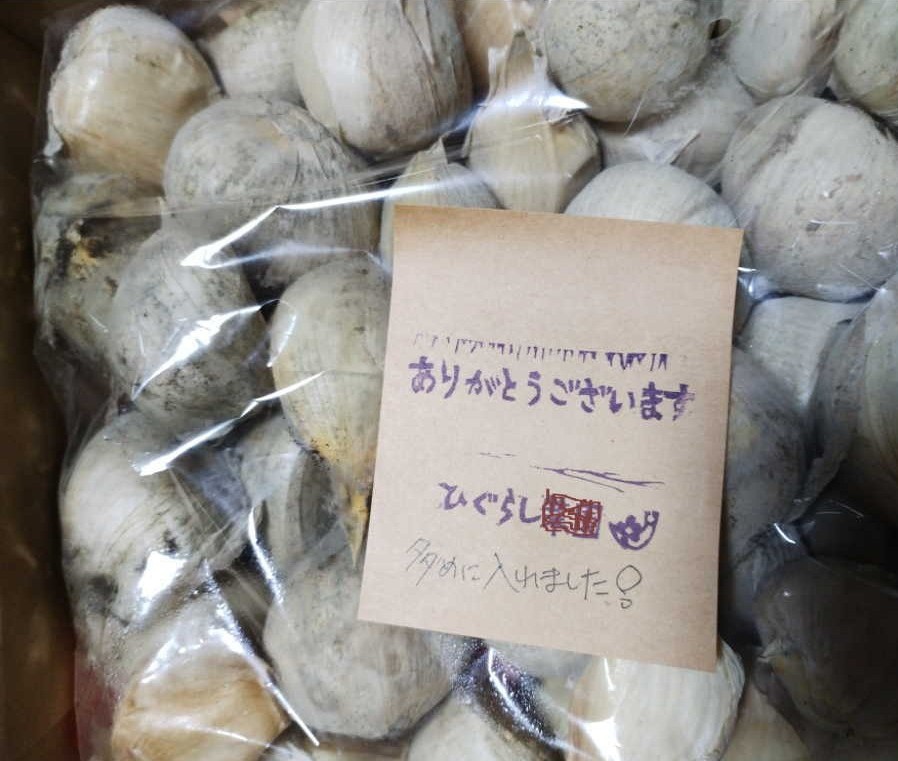 ありがとうございます
ひぐらし
多めに入れました!